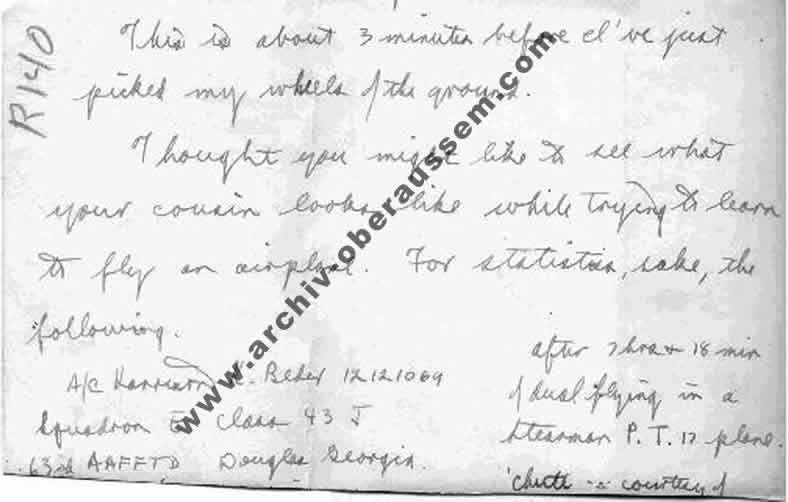 R140
This is about 3 minutes before I've just
picked my wheels of the ground.
Thought you might like to see what
your cousin looks like while trying to learn
to fly an airplane. For statistics, sake, the
following.
A/C Harrison K. Beder 12121069
Squadron Class 43 J
63rd AAFFTD Douglas Georgia.
after 7 hrs + 18 min
of dual flying in a
Stearman P.T. 17 plane.
'chute courtesy of
www.archiv-oberaussem.com